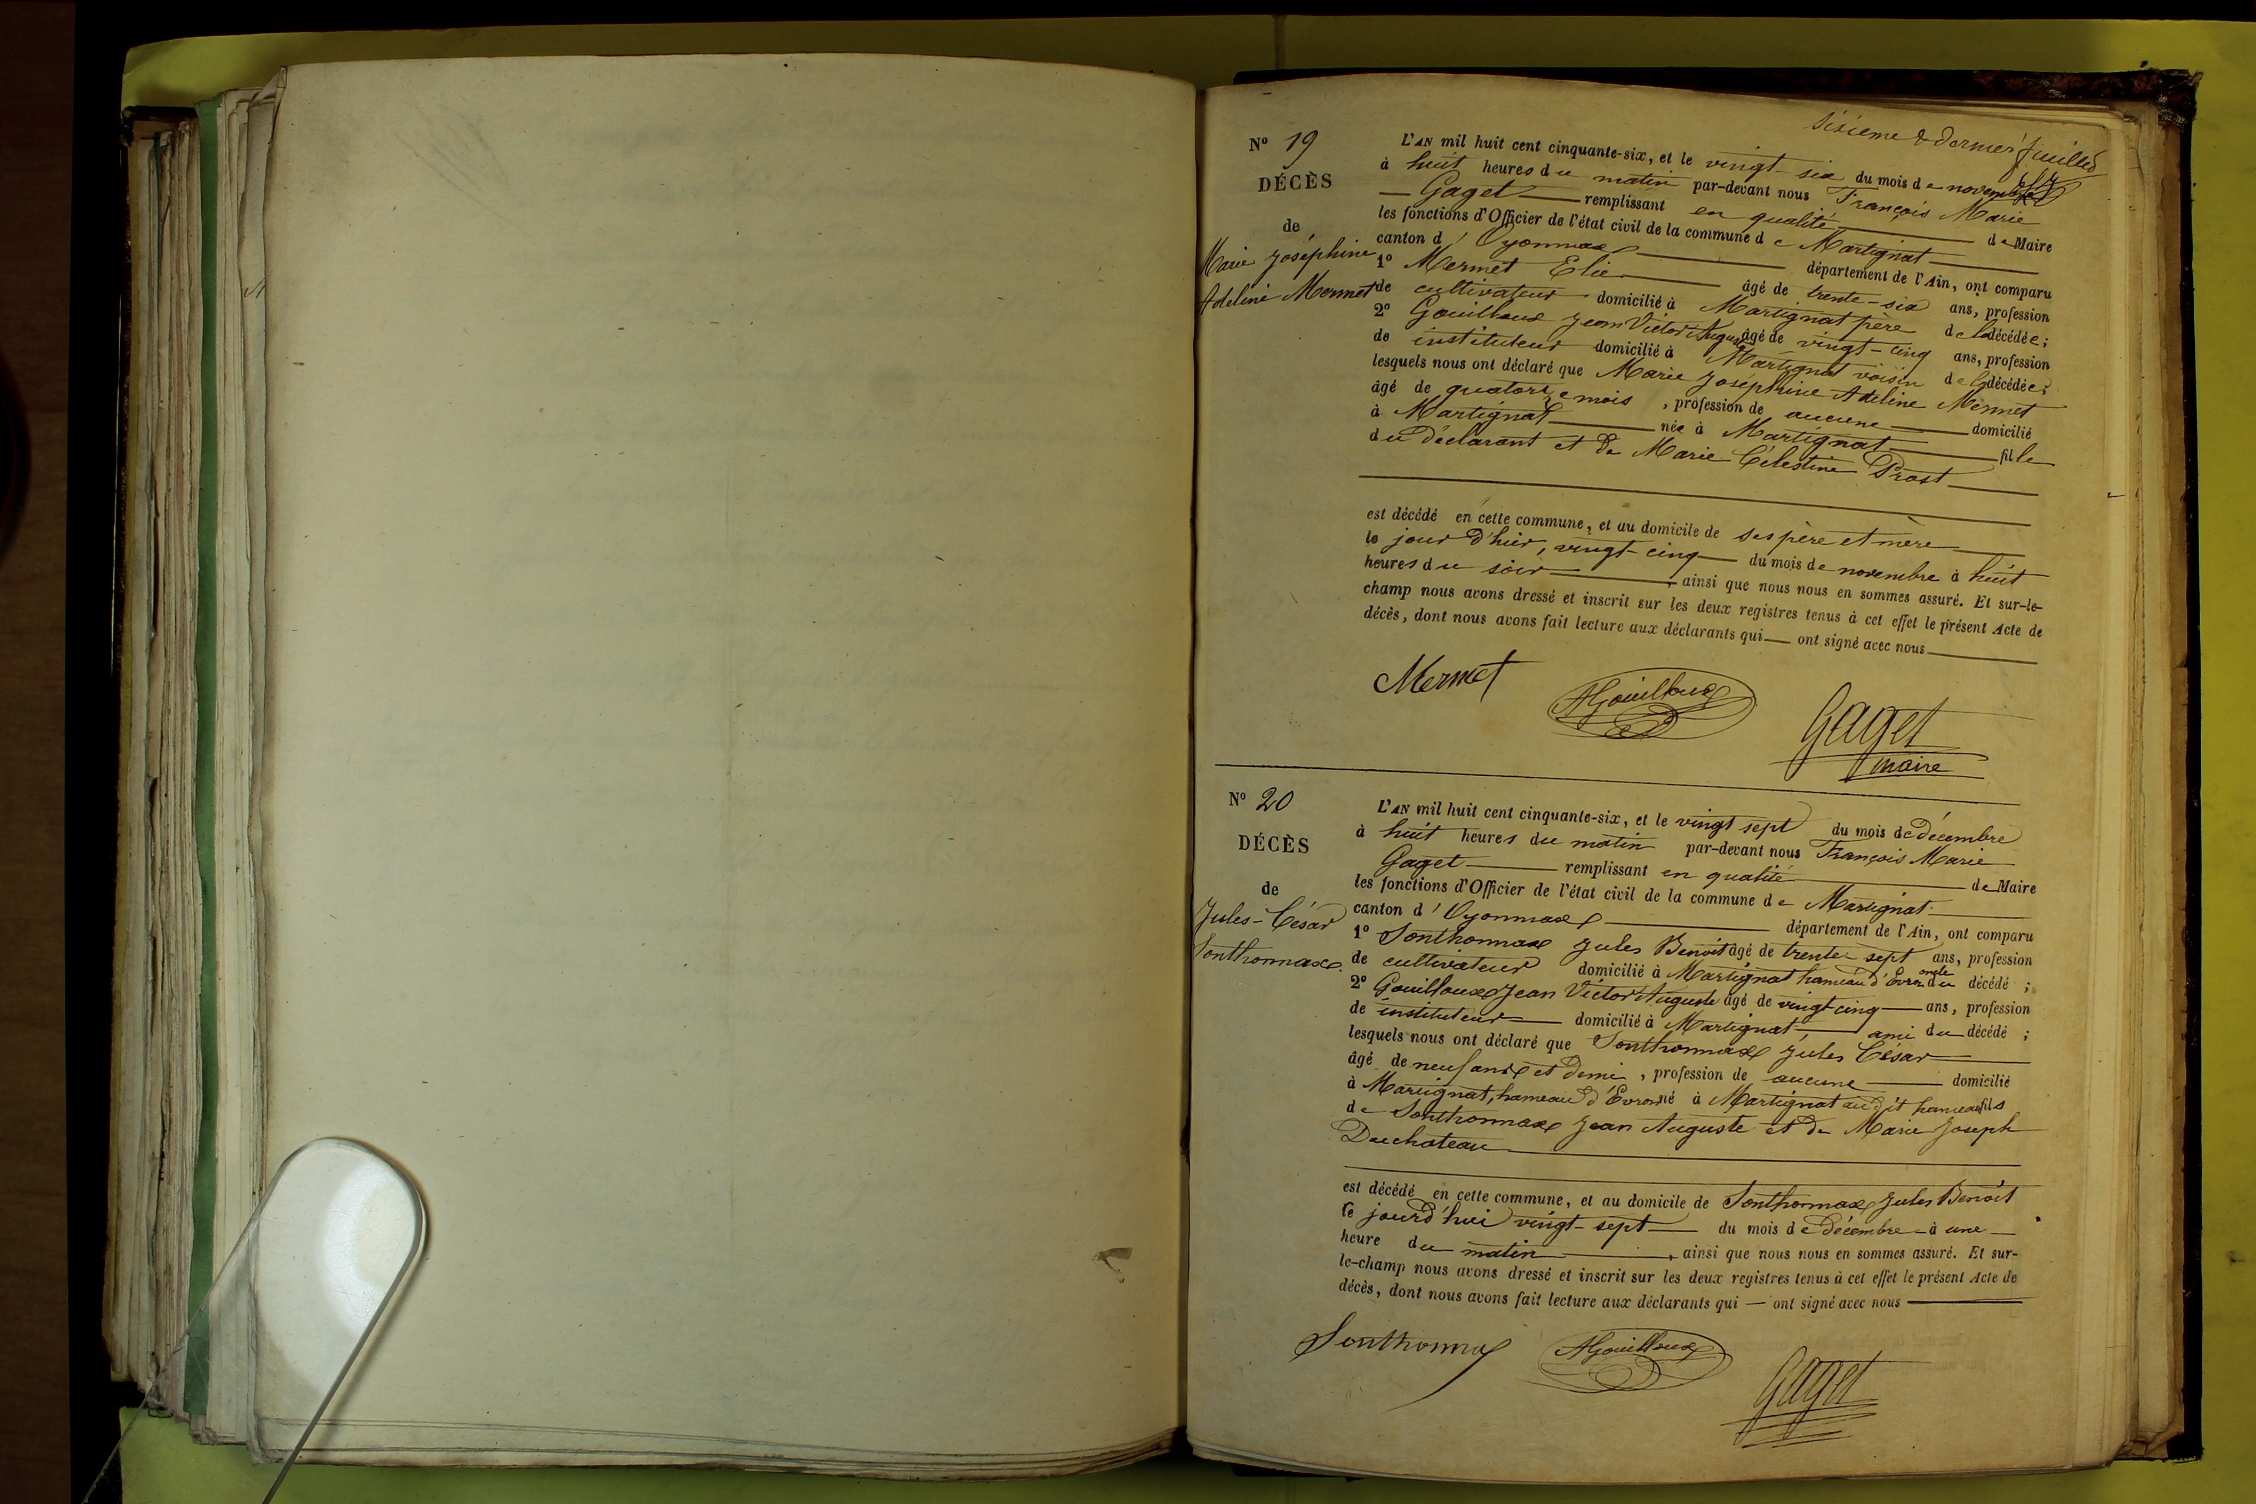 sixième & dernier feuillet
N° 19
DÉCÈS
de
Marie Joséphine
Adeline Mermet
L'AN mil huit cent cinquante-six, et le vingt-six du mois de novembre
à huit heures du matin par-devant nous François Marie
Gaget remplissant en qualité de Maire
les fonctions d'Officier de l'état civil de la commune de Martignat
canton d'Oyonnax département de l'Ain, ont comparu
1° Mermet Elie âgé de trente-six ans, profession
de cultivateur domicilié à Martignat père de la décédée;
2° Gouilloux Jean Victor Auguste âgé de vingt-cinq ans, profession
de instituteur domicilié à Martignat voisin de la décédée;
lesquels nous ont déclaré que Marie Joséphine Adeline Mermet
âgé de quatorze mois, profession de aucune domicilié
à Martignat née à Martignat fille
du déclarant et de Marie Célestine Prost
est décédé en cette commune, et au domicile de ses père et mère
le jour d'hier, vingt-cinq du mois de novembre à huit
heures du soir, ainsi que nous nous en sommes assuré. Et sur-le-
champ nous avons dressé et inscrit sur les deux registres tenus à cet effet le présent Acte de
décès, dont nous avons fait lecture aux déclarants qui — ont signé avec nous
Mermet
AGouilloux
Gaget
maire
N° 20
DÉCÈS
de
Jules-César
Sonthonnax
L'AN mil huit cent cinquante-six, et le vingt sept du mois de décembre
à huit heures du matin par-devant nous François Marie
Gaget remplissant en qualité de Maire
les fonctions d'Officier de l'état civil de la commune de Martignat
canton d'Oyonnax département de l'Ain, ont comparu
1° Sonthonnax Jules Benoît âgé de trente-sept ans, profession
de cultivateur domicilié à Martignat hameau d'Évron oncle du décédé;
2° Gouilloux Jean Victor Auguste âgé de vingt-cinq ans, profession
de instituteur domicilié à Martignat ami du décédé;
lesquels nous ont déclaré que Sonthonnax Jules César
âgé de neuf ans et demi, profession de aucune domicilié
à Martignat, hameau d'Évron né à Martignat au dit hameau fils
de Sonthonnax Jean Auguste et de Marie Joseph
Duchateau
est décédé en cette commune, et au domicile de Sonthonnax Jules Benoît
le jourd'hui vingt-sept du mois de décembre à une
heure du matin, ainsi que nous nous en sommes assuré. Et sur-
le-champ nous avons dressé et inscrit sur les deux registres tenus à cet effet le présent Acte de
décès, dont nous avons fait lecture aux déclarants qui — ont signé avec nous
Sonthonnax
AGouilloux
Gaget